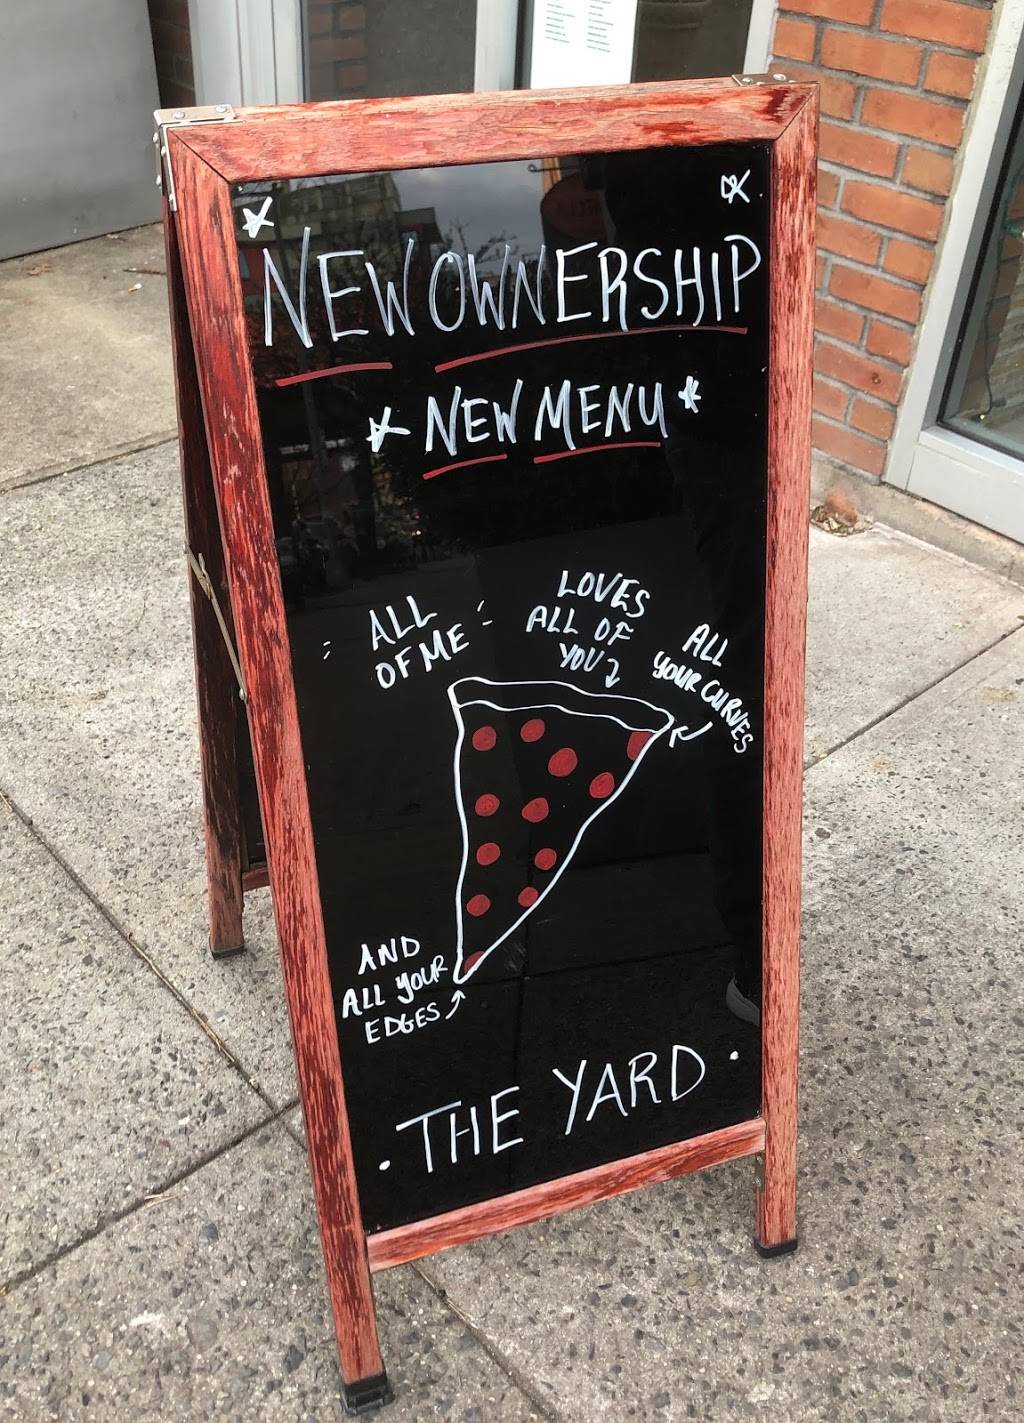 NEW OWNERSHIP
NEW MENU
ALL
OF ME
LOVES
ALL OF
YOU
ALL
YOUR CURVES
AND
ALL YOUR
EDGES
THE YARD